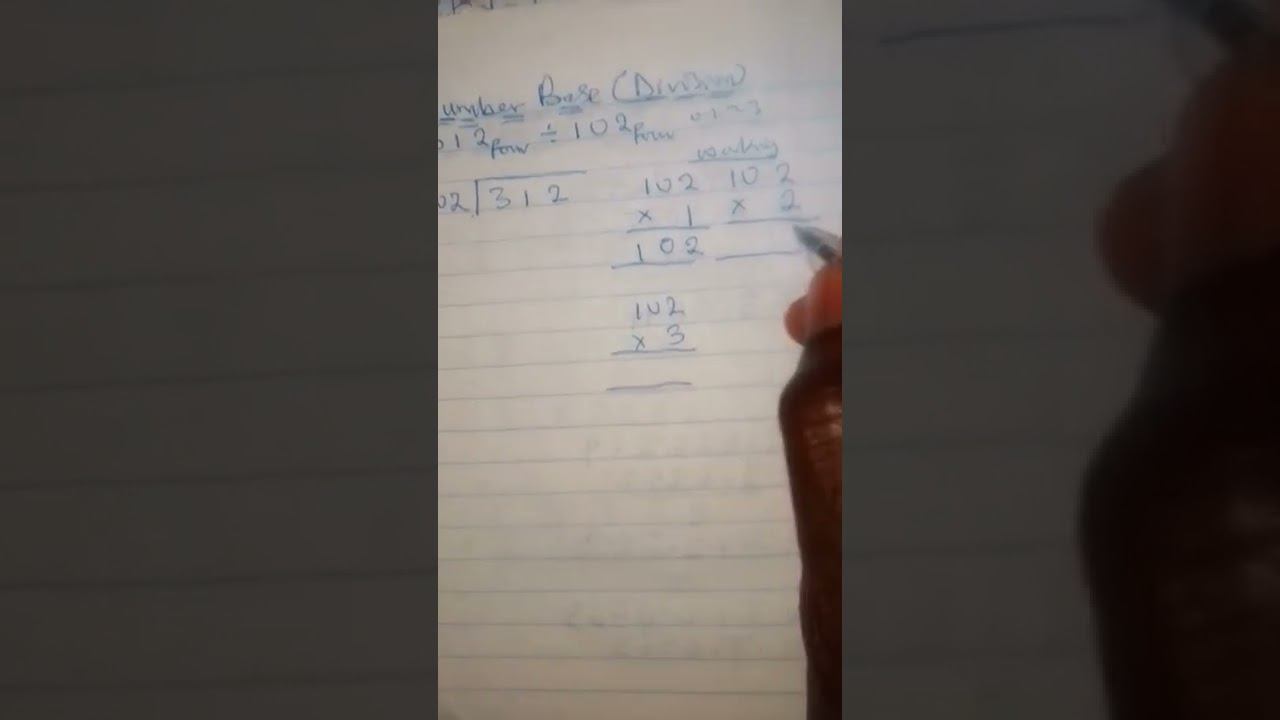 umber Base (Division)
12four ÷ 102four 0123
working
02 312
102 102
x 1 x 2
102
102
x 3